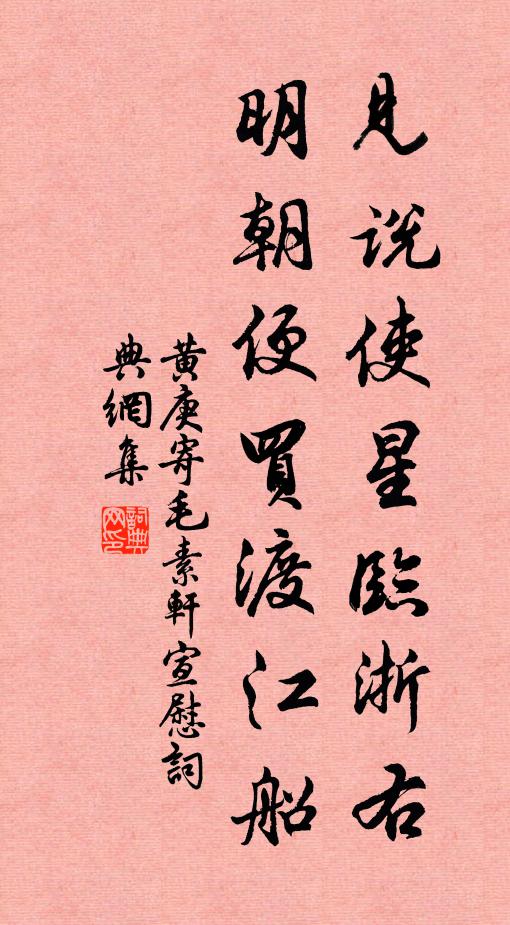 見說使星臨浙右
明朝便買渡江船
黃庚寄毛素軒宣慰詞
典網集
詞典網印